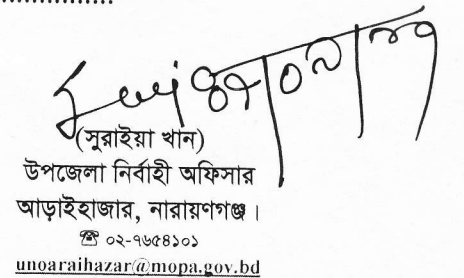 (সুরাইয়া খান)
উপজেলা নির্বাহী অফিসার
আড়াইহাজার, নারায়ণগঞ্জ।
☎ ০২-৭৬৫৪১০১
unoaraihazar@mopa.gov.bd